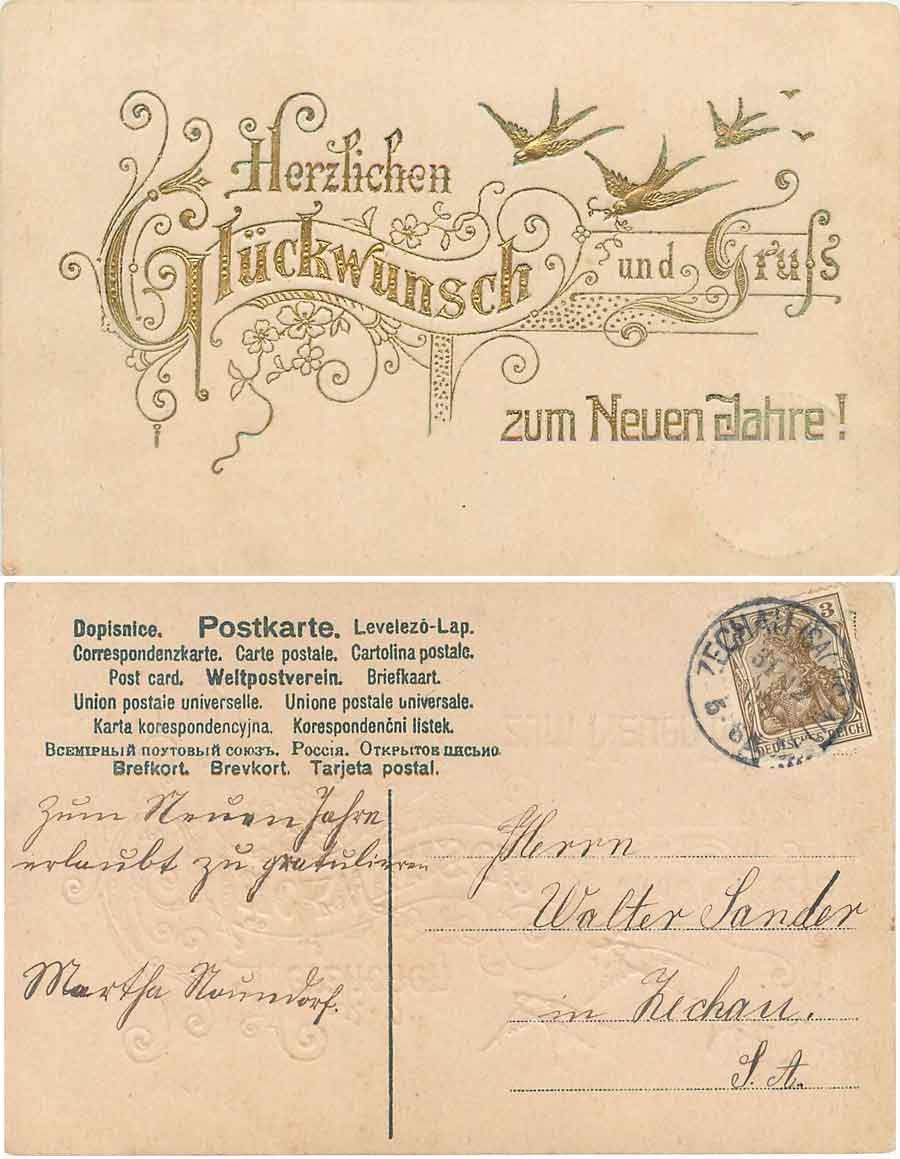 Herzlichen
Glückwunsch
und Gruss
zum Neuen Jahre!
Dopisnice. Postkarte. Levelező-Lap.
Correspondenzkarte. Carte postale. Cartolina postale.
Post card. Weltpostverein. Briefkaart.
Union postale universelle. Unione postale universale.
Karta korespondencyjna. Korespondenční listek.
Всемірный поутовый союзъ. Россія. Открытое письмо
Brefkort. Brevkort. Tarjeta postal.
3
DEUTSCHES REICH
ZECHAU
Zum Neuen Jahre
erlaubt zu gratulieren
Martha Naundorf.
Herrn
Walter Sander
in Zechau.
S. A.